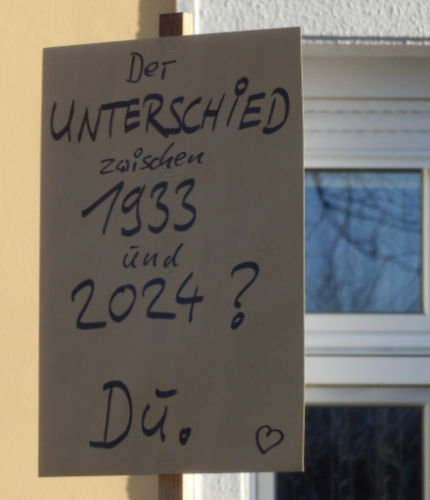 Der
UNTERSCHiED
zwischen
1933
und
2024?
Du. ♡